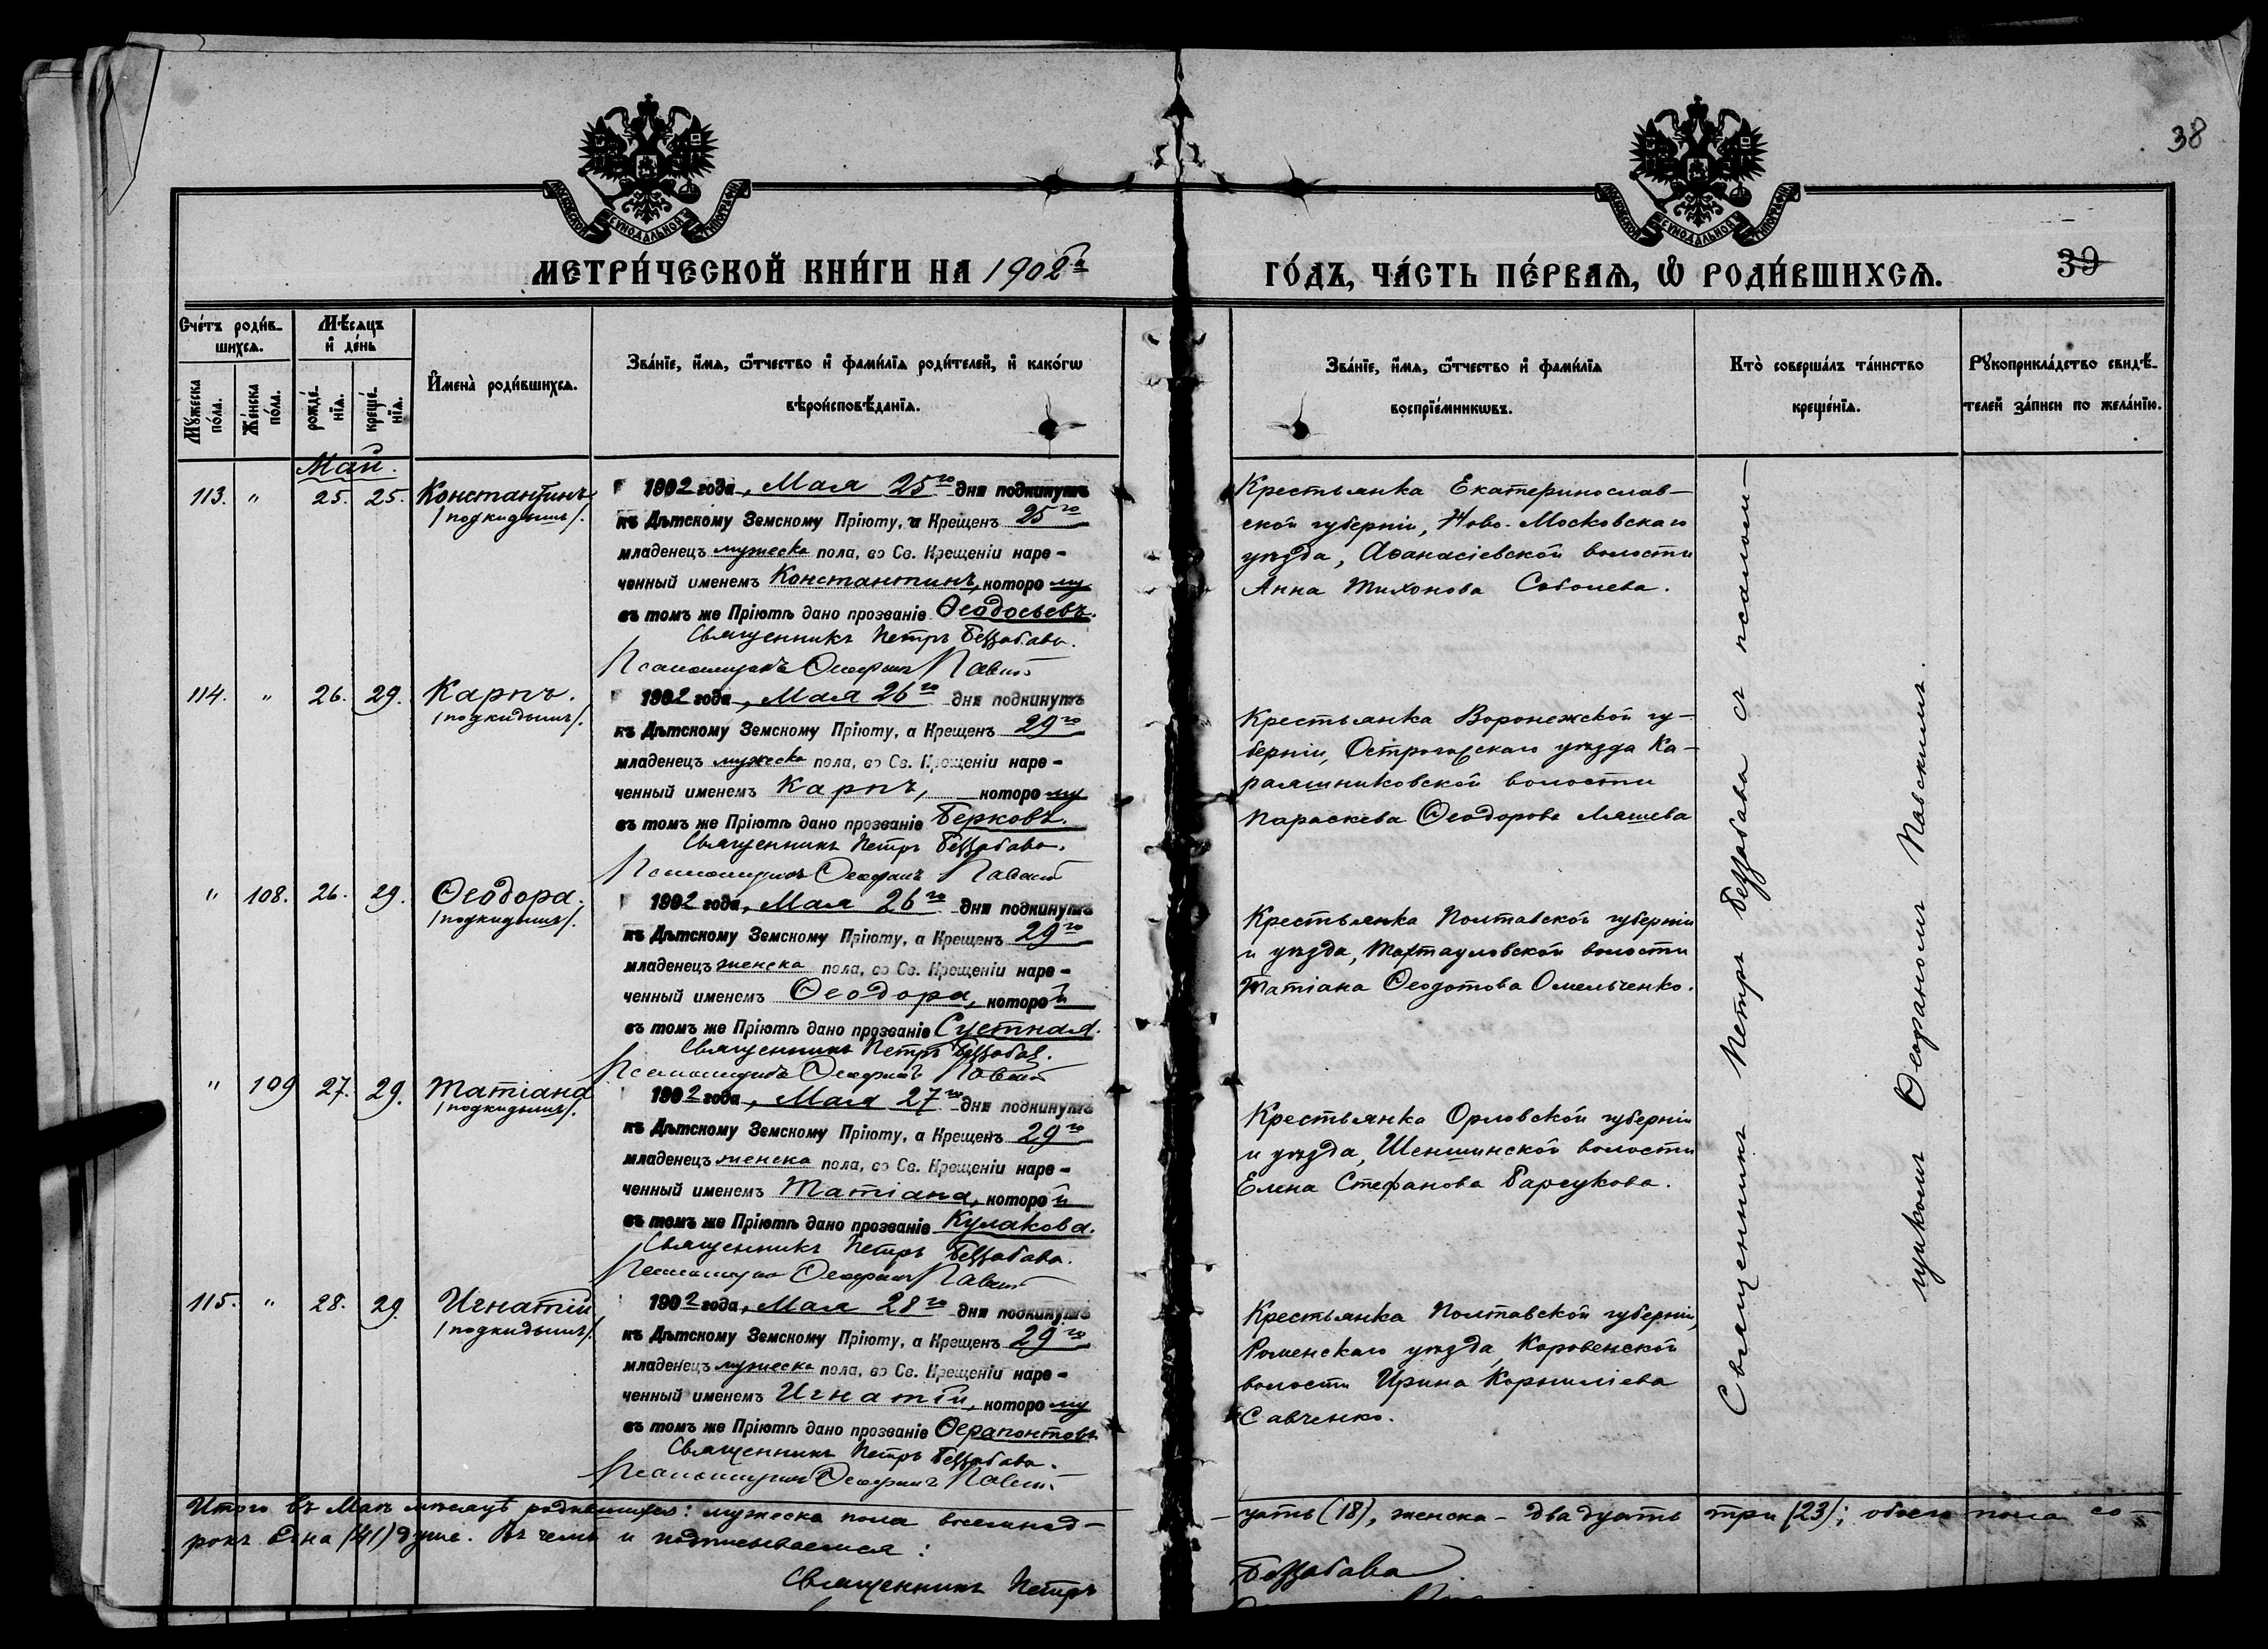 38
МОСКОВСКОЙ СѴНОДАЛЬНОЙ ТИПОГРАФІИ
МОСКОВСКОЙ СѴНОДАЛЬНОЙ ТИПОГРАФІИ
МЕТРИ́ЧЕСКОЙ КНИ́ГИ НА 1902й
ГО́ДЪ, ЧА́СТЬ ПЕ́РВАѦ, Ѡ҆ РОДИ́ВШИХСѦ.
39
Сче́тъ роди́в-
шихсѧ.
Мꙋ́жеска по́ла.
Же́нска по́ла.
Мѣ́сѧцъ
и҆ де́нь
рожде́-
нїѧ.
креще́-
нїѧ.
И҆мена̀ роди́вшихсѧ.
Зва́нїе, и҆́мѧ, ѻ҆́тчество и҆ фами́лїѧ роди́телей, и҆ како́гѡ
вѣроисповѣ́данїѧ.
Зва́нїе, и҆́мѧ, ѻ҆́тчество и҆ фами́лїѧ
воспрїе́мникѡвъ.
Кто̀ соверша́лъ та́инство
креще́нїѧ.
Рꙋкоприкла́дство свидѣ́-
телей за́писи по жела́нїю.
Май.
113. " 25. 25. Константинъ
/подкидышъ/.
1902 года, Мая 25го дня подкинутъ
къ Дѣтскому Земскому Пріюту, а Крещенъ 25го
младенецъ мужеска пола, во Св. Крещеніи наре-
ченный именемъ Константинъ, которому
въ томъ же Пріютѣ дано прозваніе Ѳеодосьевъ.
Священникъ Петръ Беззабава.
Псаломщикъ Ѳеофанъ Павскій
Крестьянка Екатеринослав-
ской губерніи, Ново-Московскаго
уѣзда, Аѳанасіевской волости
Анна Тихонова Соболева.
114. " 26. 29. Карпъ.
/подкидышъ/.
1902 года, Мая 26го дня подкинутъ
къ Дѣтскому Земскому Пріюту, а Крещенъ 29го
младенецъ мужеска пола, во Св. Крещеніи наре-
ченный именемъ Карпъ, которому
въ томъ же Пріютѣ дано прозваніе Берковъ.
Священникъ Петръ Беззабава.
Псаломщикъ Ѳеофанъ Павскій
Крестьянка Воронежской гу-
берніи, Острогожскаго уѣзда Ка-
раяшниковской волости
Параскева Ѳеодорова Ляшева
" 108. 26. 29. Ѳеодора.
/подкидышъ/.
1902 года, Мая 26го дня подкинутъ
къ Дѣтскому Земскому Пріюту, а Крещенъ 29го
младенецъ женска пола, во Св. Крещеніи наре-
ченный именемъ Ѳеодора, которой
въ томъ же Пріютѣ дано прозваніе Суетная.
Священникъ Петръ Беззабав.
Псаломщикъ Ѳеофанъ Павскій
Крестьянка Полтавской губерніи
и уѣзда, Тахтауловской волости
Татіана Ѳеодотова Омельченко.
" 109 27. 29. Татіана
/подкидышъ/.
1902 года, Мая 27го дня подкинутъ
къ Дѣтскому Земскому Пріюту, а Крещенъ 29го
младенецъ женска пола, во Св. Крещеніи наре-
ченный именемъ Татіана, которой
въ томъ же Пріютѣ дано прозваніе Кулакова.
Священникъ Петръ Беззабава.
Псаломщикъ Ѳеофанъ Павскій
Крестьянка Орловской губерніи
и уѣзда, Шеншинской волости
Елена Стефанова Барсукова.
115. " 28. 29. Игнатій
/подкидышъ/.
1902 года, Мая 28го дня подкинутъ
къ Дѣтскому Земскому Пріюту, а Крещенъ 29го
младенецъ мужеска пола, во Св. Крещеніи наре-
ченный именемъ Игнатій, которому
въ томъ же Пріютѣ дано прозваніе Ѳерапонтовъ
Священникъ Петръ Беззабава.
Псаломщикъ Ѳеофанъ Павскій.
Крестьянка Полтавской губерніи,
Роменскаго уѣзда, Коровенской
волости Ирина Корниліева
Савченко.
Священникъ Петръ Беззабава съ псалом-
щикомъ Ѳеофаномъ Павскимъ.
Итого въ Маѣ мѣсяцѣ родившихся: мужеска пола восемнад-
цать (18), женска - двадцать три (23); обоего пола со-
рокъ одна (41) душа. Въ чемъ и подписываемся:
Священникъ Петръ Беззабава